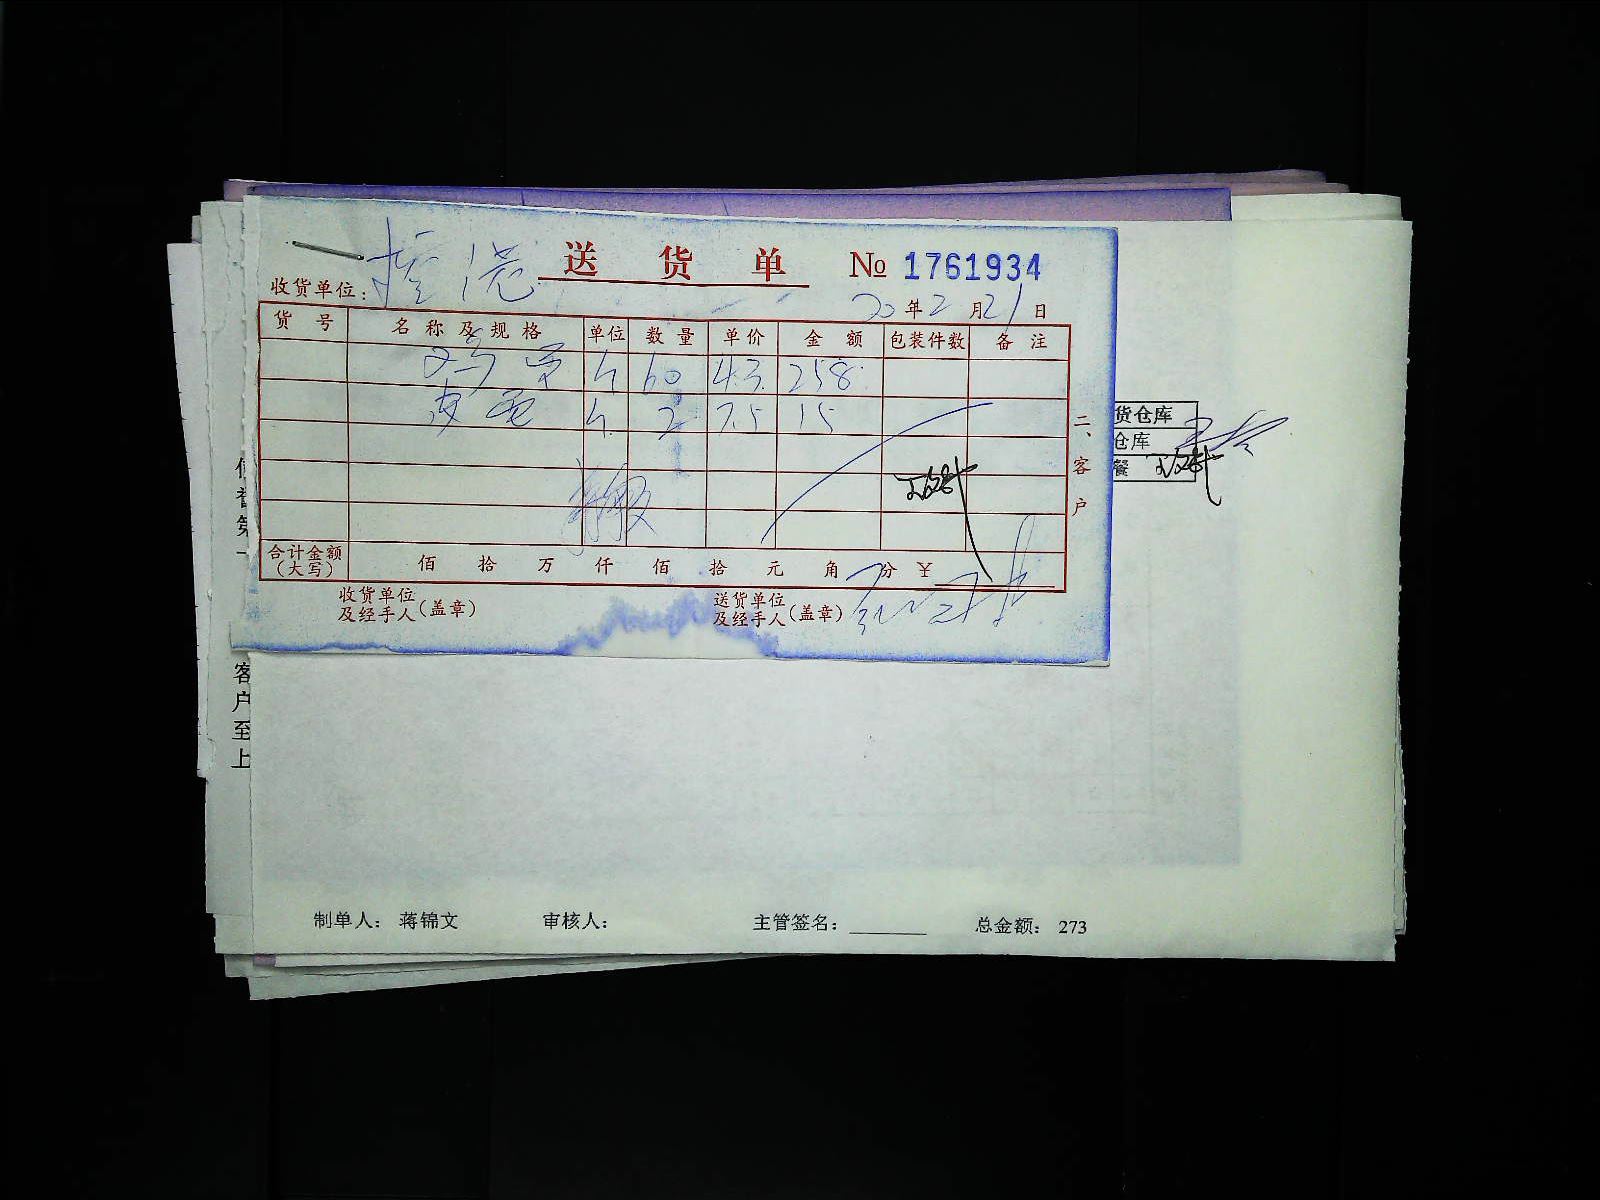 送货单 № 1761934
收货单位：
20年2月21日
货号 名称及规格 单位 数量 单价 金额 包装件数 备注
鸡蛋 斤 60 4.3 258
皮蛋 斤 2 7.5 15
二、客户
合计金额（大写） 佰 拾 万 仟 佰 拾 元 角 分 ¥
收货单位及经手人（盖章）
送货单位及经手人（盖章）
货仓库
仓库
餐
客户至上
制单人： 蒋锦文 审核人： 主管签名：________ 总金额： 273